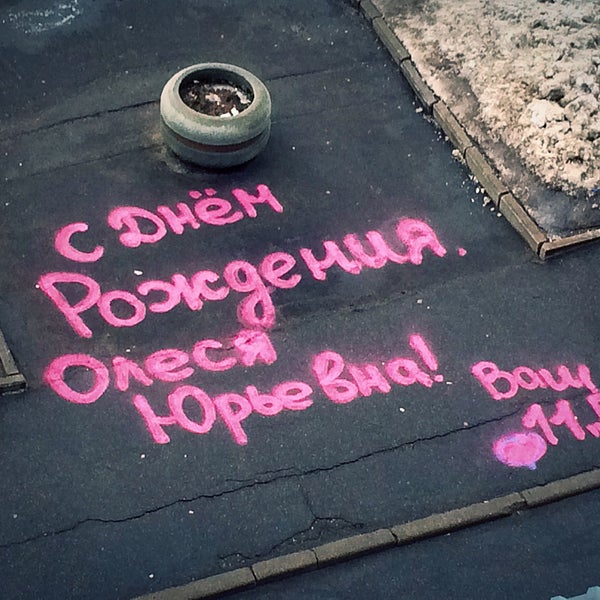 С Днём
Рождения.
Олеся
Юрьевна!
Ваш
11.